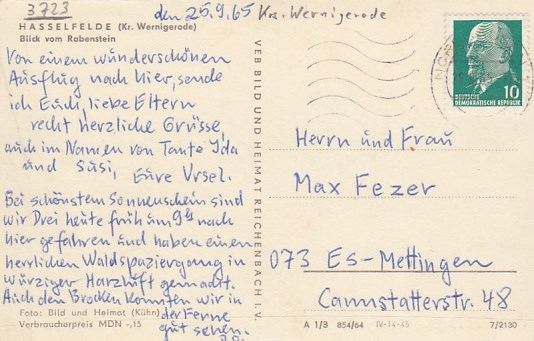 3723
den 25.9.65 Krs. Wernigerode
HASSELFELDE (Kr. Wernigerode)
Blick vom Rabenstein
Von einem wunderschönen
Ausflug nach hier, sende
ich Euch, liebe Eltern
recht herzliche Grüsse,
auch im Namen von Tante Ida
und Susi, Eure Ursel.
Bei schönstem Sonnenschein sind
wir Drei heute früh um 9h nach
hier gefahren und haben einen
herrlichen Waldspaziergang in
würziger Harzluft gemacht.
Auch den Brocken konnten wir in
der Ferne
gut sehen.
Foto: Bild und Heimat (Kühn)
Verbraucherpreis MDN -,15
VEB BILD UND HEIMAT REICHENBACH I. V.
DEUTSCHE
DEMOKRATISCHE REPUBLIK
10
Herrn und Frau
Max Fezer
073 Es-Mettingen
Cannstatterstr. 48
A 1/B 854/64 IV-14-45 7/2130